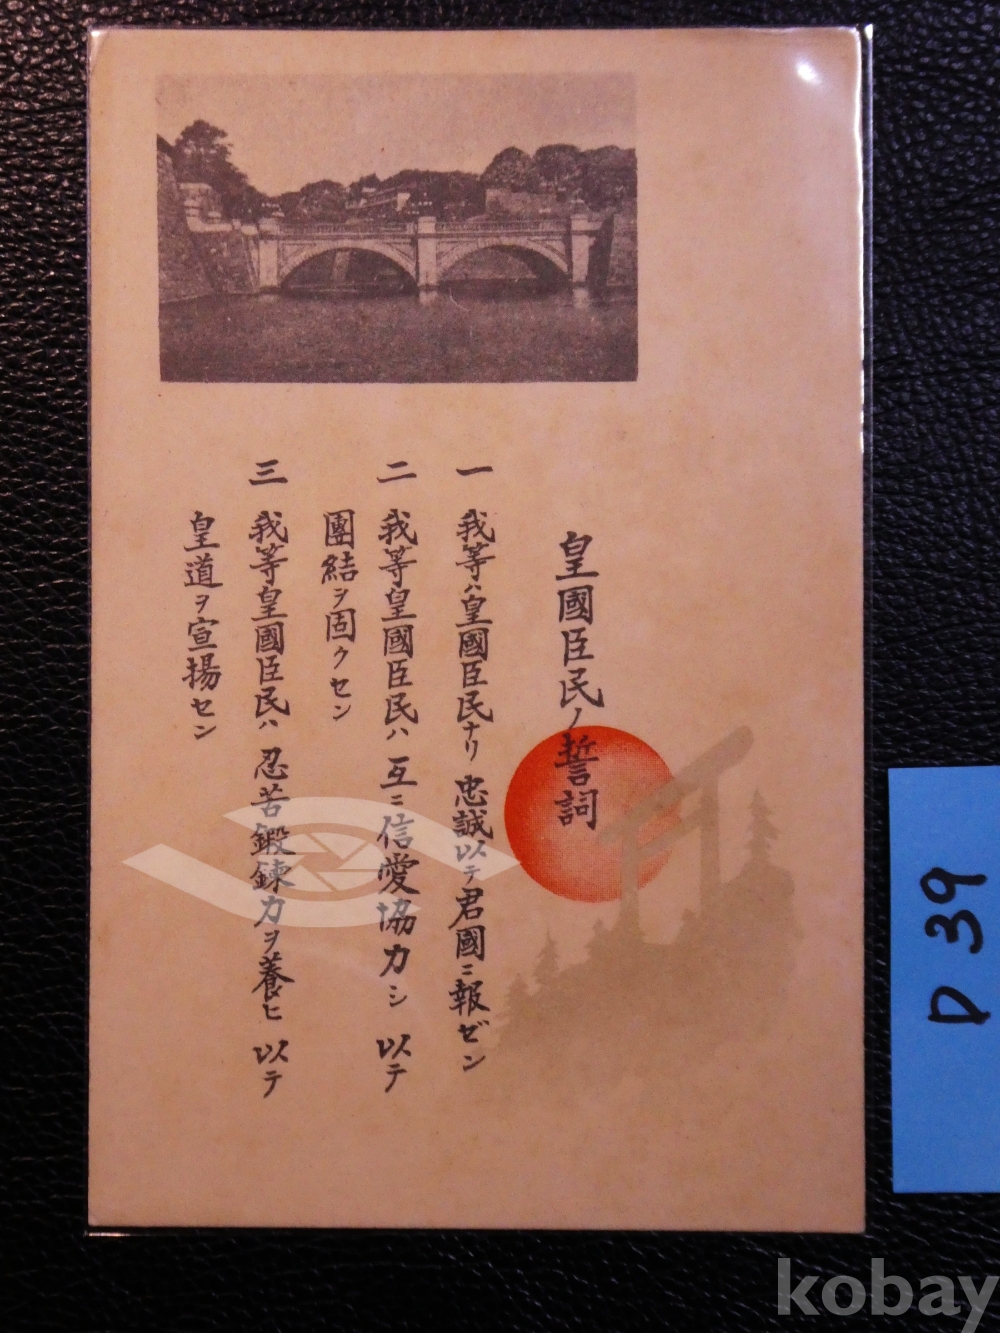 皇國臣民ノ誓詞
一 我等ハ皇國臣民ナリ 忠誠以テ君國ニ報ゼン
二 我等皇國臣民ハ 互ニ信愛協力シ 以テ
團結ヲ固クセン
三 我等皇國臣民ハ 忍苦鍛錬力ヲ養ヒ 以テ
皇道ヲ宣揚セン
D 39
kobay